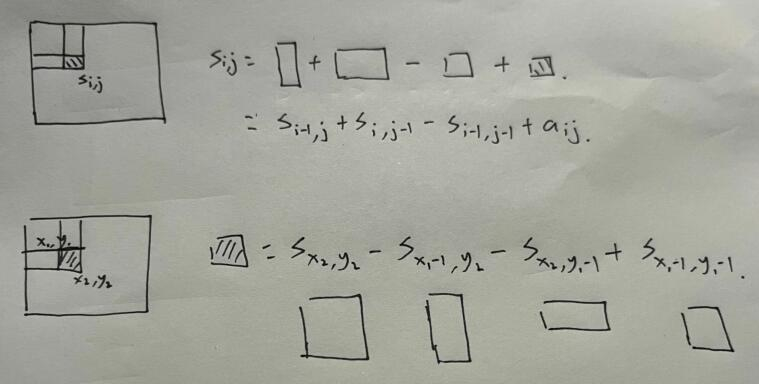 Si,j = ▯ + ▭ - □ + ▨.
Si,j
= Si-1,j + Si,j-1 - Si-1,j-1 + aij.
x1,y1
x2,y2
▨ = Sx2,y2 - Sx1-1,y2 - Sx2,y1-1 + Sx1-1,y1-1.